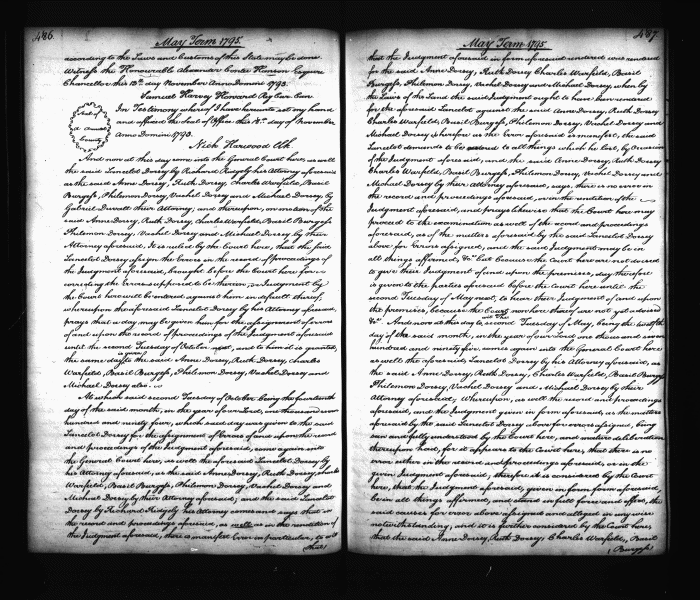 486.
May Term 1795.
according to the Laws and Customs of this State may be done
Witness the Honourable Alexander Contee Hanson Esquire
Chancellor this 13th day November Anno Domini 1793.
Samuel Harvey Howard Reg Cur Can
In Testimony whereof I have hereunto set my hand
and affixed the Seal of Office this 14th day of November
Anno Domini 1793.
Seal of
A Arundel
County
Nich Harwood Clk.
And now at this day come into the General Court here, as well
the said Lancelot Dorsey by Richard Ridgely his Attorney aforesaid
as the said Anne Dorsey, Ruth Dorsey, Charles Warfield, Basil
Burgess, Philemon Dorsey, Vachel Dorsey and Michael Dorsey, by
Gabriel Duvall their Attorney; and thereupon, on motion of the
said Anne Dorsey, Ruth Dorsey, Charles Warfield, Basil Burgess,
Philemon Dorsey, Vachel Dorsey and Michael Dorsey by their
Attorney aforesaid. It is ruled by the Court here, that the said
Lancelot Dorsey assign the Errors in the record of proceedings of
the Judgment aforesaid, brought before the Court here for
correcting the errors supposed to be therein, Judgment by
the Court here will be entered against him in default thereof,
whereupon the aforesaid Lancelot Dorsey by his Attorney aforesaid,
prays that a day may be given him for the assignment of errors
of and upon the record of proceedings of the Judgment aforesaid
until the second Tuesday of October next, and to him it is granted,
the same day is given to the said Anne Dorsey, Ruth Dorsey, Charles
Warfield, Basil Burgess, Philemon Dorsey, Vachel Dorsey and
Michael Dorsey also.
At which said second Tuesday of October being the fourteenth
day of the said month, in the year of our Lord, one thousand seven
hundred and ninety four, which said day was given to the said
Lancelot Dorsey for the assignment of Errors of and upon the record
and proceedings of the Judgment aforesaid, come again into
the General Court here, as well the aforesaid Lancelot Dorsey by
his Attorney aforesaid, as the said Anne Dorsey, Ruth Dorsey, Charles
Warfield, Basil Burgess, Philemon Dorsey, Vachel Dorsey and
Michael Dorsey by their Attorney aforesaid, and the said Lancelot
Dorsey by Richard Ridgely his Attorney comes and says that in
the record and proceedings aforesaid, as well as in the rendition of
the Judgment aforesaid, there is manifest Error in particular, to wit
that
487.
May Term 1795.
that the Judgment aforesaid in form aforesaid rendered was rendered
for the said Anne Dorsey, Ruth Dorsey Charles Warfield, Basil
Burgess, Philemon Dorsey, Vachel Dorsey and Michael Dorsey, when by
the Laws of the Land the said Judgment ought to have been rendered
for the aforesaid Lancelot against the said Anne Dorsey, Ruth Dorsey
Charles Warfield, Basil Burgess, Philemon Dorsey, Vachel Dorsey and
Michael Dorsey wherefore as the Error aforesaid is manifest, the said
Lancelot demands to be restored to all things which he lost, by occasion
of the Judgment aforesaid, and the said Anne Dorsey, Ruth Dorsey
Charles Warfield, Basil Burgess, Philemon Dorsey, Vachel Dorsey and
Michael Dorsey by their Attorney aforesaid, says there is no error in
the record and proceedings aforesaid, or in the rendition of the
Judgment aforesaid, and prays likewise that the Court here may
proceed to the examination as well of the record and proceedings
aforesaid, as of the matters aforesaid by the said Lancelot Dorsey
above for Errors assigned, and the said Judgment may be in
all things affirmed, &c. but because the Court here are not advised
to give their Judgment of and upon the premises, day therefore
is given to the parties aforesaid before the Court here until the
second Tuesday of May next, to hear their Judgment of and upon
the premises, because the Court now here thereof are not yet advised
&c. And now at this day to wit the second Tuesday of May, being the twelfth
day of the said month, in the year of our Lord one thousand seven
hundred and ninety five, come again into the General Court here
as well the aforesaid Lancelot Dorsey by his Attorney aforesaid, as
the said Anne Dorsey, Ruth Dorsey, Charles Warfield, Basil Burgess
Philemon Dorsey, Vachel Dorsey and Michael Dorsey by their
Attorney aforesaid, Whereupon, as well the record and proceedings
aforesaid, and the Judgment given in form aforesaid, as the matters
aforesaid by the said Lancelot Dorsey above for errors assigned, being
seen and fully understood by the Court here, and mature deliberation
thereupon had, for it appears to the Court here, that there is no
error either in the record and proceedings aforesaid, or in the
given Judgment aforesaid, therefore it is considered by the Court
here, that the Judgment aforesaid, given in form aforesaid,
be in all things affirmed, and stand in full force and effect, the
said causes for error above assigned and alleged in any wise
notwithstanding, and it is further considered by the Court here,
that the said Anne Dorsey, Ruth Dorsey, Charles Warfield, Basil
Burgess